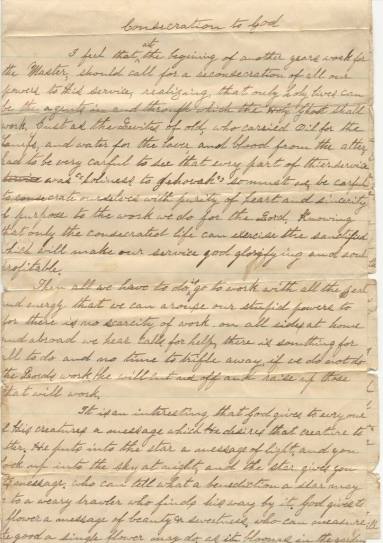 Consecration to God
I feel that at the begining of another years work for
the Master, should call for a reconsecration of all our
powers to His service, realizing, that only holy lives can
be the agents in and through which the Holy Ghost shall
work. Just as the Levites of old, who carried Oil for the
lamps, and water for the laver and blood from the alter
had to be very carful to see that evry part of their service
service was "Holiness to Jehovah" so must we be carful
to consecrate ourselves with purity of heart and sincerity
of purpose to the work we do for the Lord, Knowing
that only the consecrated life can exercise the sanctified
which will make our service god glorifying and soul
profitable.
Then all we have to do is go to work with all the zeal
and energy that we can arouse our stupid powers to
for there is no scarcity of work, on all sides at home
and abroad we hear calls for help, there is somthing for
all to do and no time to trifle away, if we do not do
the Lords work, He will put aid off and raise up those
that will work.
It is an interesting, that God gives to evry one
of His creatures a message which He desires that creature to
utter, He puts into the star a message of light, and you
look up into the sky at night, and the star gives you
its message, who can tell what a benediction a star may
be to a weary travler who finds his way by it. God gives to
flower a message of beauty & sweetness, who can measure
the good a single flower may do, as it blooms in the